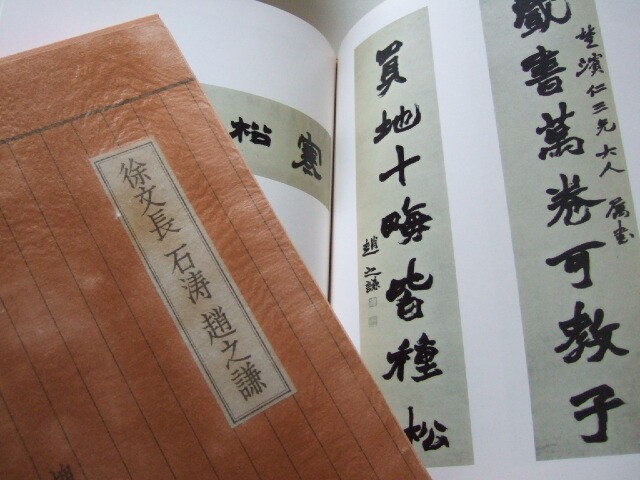 徐文長 石涛 趙之謙
藏書萬卷可教子
仁三兄大人
買地十畮皆種松
趙之謙
松